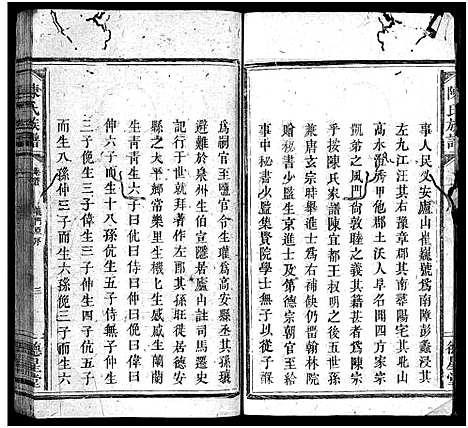 陳氏族譜
事人民乂安廬山崔巍號為南障彭蠡襟
左九江汪其右豫章郡其南翠陽宅其此山
高水清秀甲他郡土沃人阜名聞四方家
凱弟之風門尙敦睦之義其為陳宗
乎按陳氏家譜陳宜都王叔明之後五世孫
兼唐玄宗時舉進士為右補闕仍晋翰林院
士兼生京進士及第德宗朝官
事中秘書少監集賢院學士無子以從子
為祠官至鹽官令生瓘為高安縣丞其孫瓖
避難於泉州生伯宣隱居廬山註司馬遷史
記行於世就拜著作左郎其孫旺徙於德安
縣之太平鄉常樂里生機生感感生蘭蘭
生青青生六子曰伉曰仕曰俛曰偉曰
仲六子而生十八孫伉生六子侍無子仲生
三子俛生三子偉生三子伉五子
而生八孫仲三子而生六孫俛三子而生六
陳氏族譜
卷首
義門原序
三
德星堂
德星堂